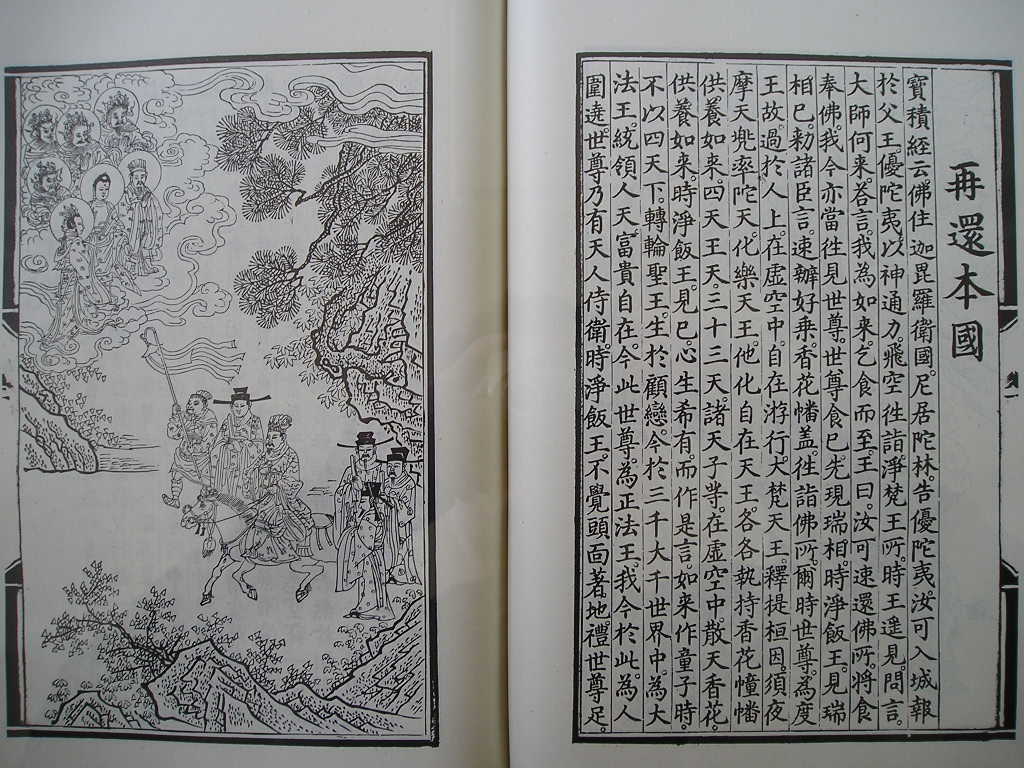 再還本國
寶積經云佛住迦毘羅衛國。尼居陀林。告優陀夷。汝可入城報
於父王。優陀夷以神通力。飛空徃詣淨梵王所。時王遥見。問言。
大師何來。荅言。我為如來。乞食而至。王曰。汝可速還佛所。將食
奉佛。我今亦當徃見世尊。世尊食已。先現瑞相。時淨飯王。見瑞
相已。勑諸臣言。速辦好乗。香花幡盖。徃詣佛所。爾時世尊。為度
王故。過於人上。在虛空中。自在游行。大梵天王。釋提桓因。須夜
摩天。兜率陀天。化樂天王。他化自在天王。各各執持香花幢幡
供養如來。四天王天。三十三天。諸天子等。在虛空中。散天香花。
供養如來。時淨飯王。見已。心生希有。而作是言。如來作童子時。
不以四天下。轉輪聖王。生於顧戀。今於三千大千世界中。為大
法王。統領人天。富貴自在。今此世尊。為正法王。我今於此。為人
圍遶。世尊乃有天人侍衛。時淨飯王。不覺頭面著地。禮世尊足。